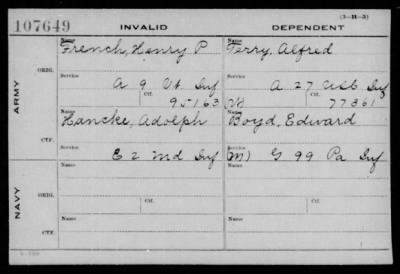 107649 INVALID DEPENDENT (3-11-3)
Name Name
French, Henry P Terry, Alfred
ARMY ORIG. Service Service
A 9 Vt. Inf A 27 Inf
Ctf. Ctf.
95163 77361
Name Name
Hancke, Adolph Boyd, Edward
CTF. Service Service
E 2 Md Inf (M) G 99 Pa Inf
NAVY ORIG. Name Name
Ctf. Ctf.
CTF. Name Name